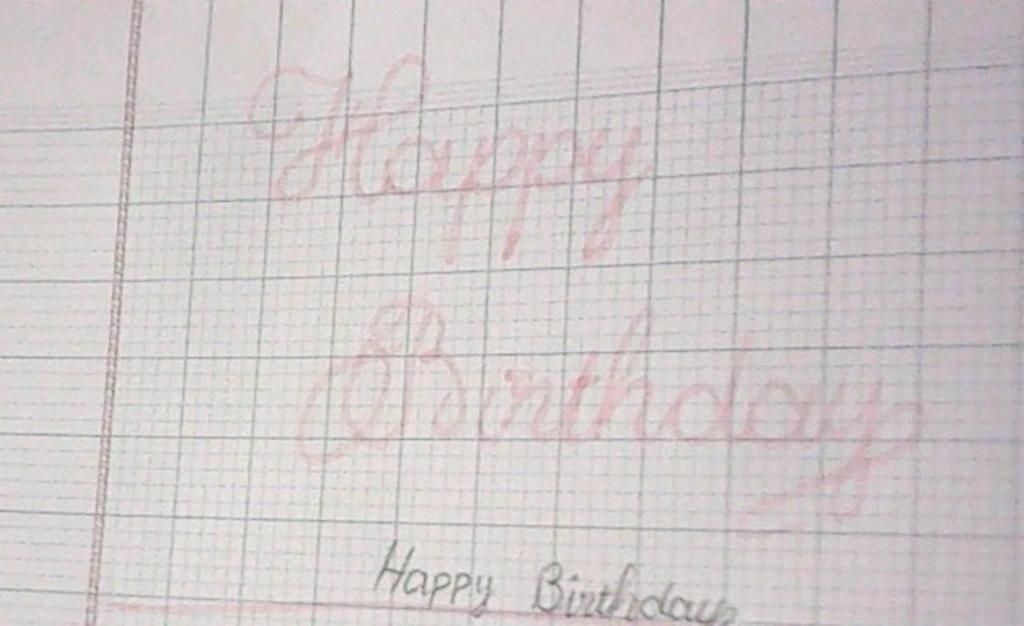 Happy
Birthday
Happy Birthday